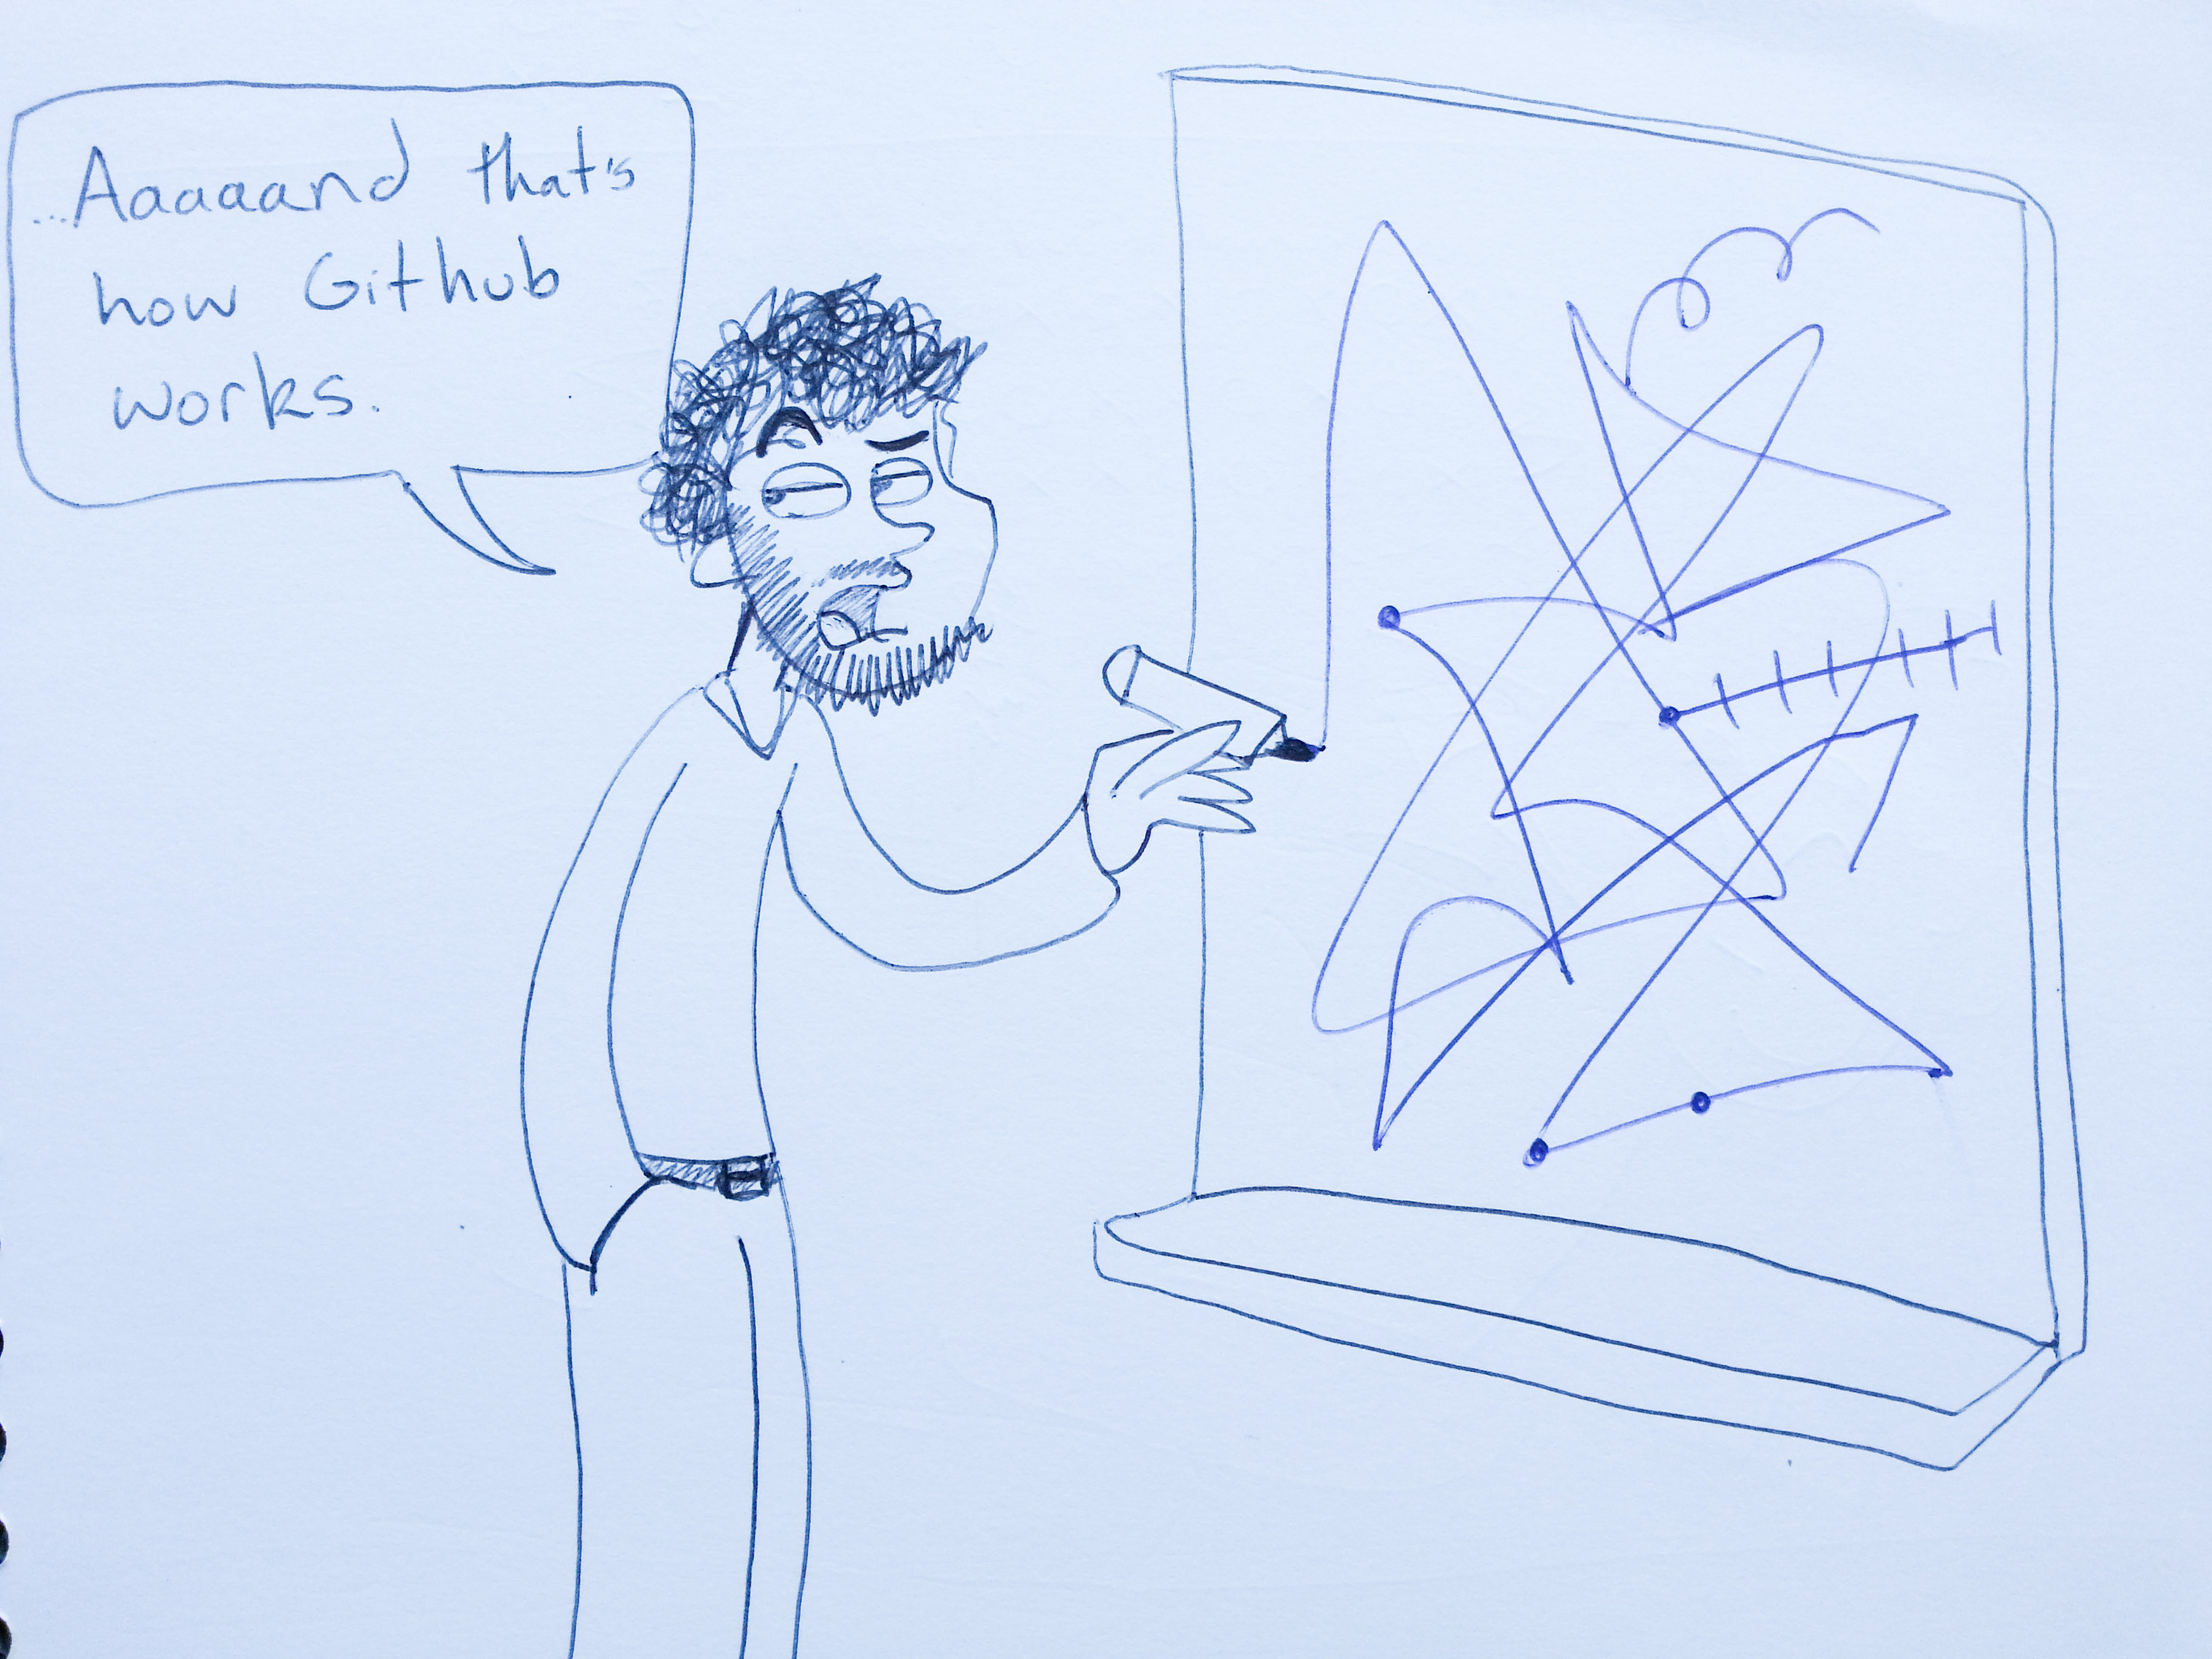 ...Aaaaand that's
how Github
works.